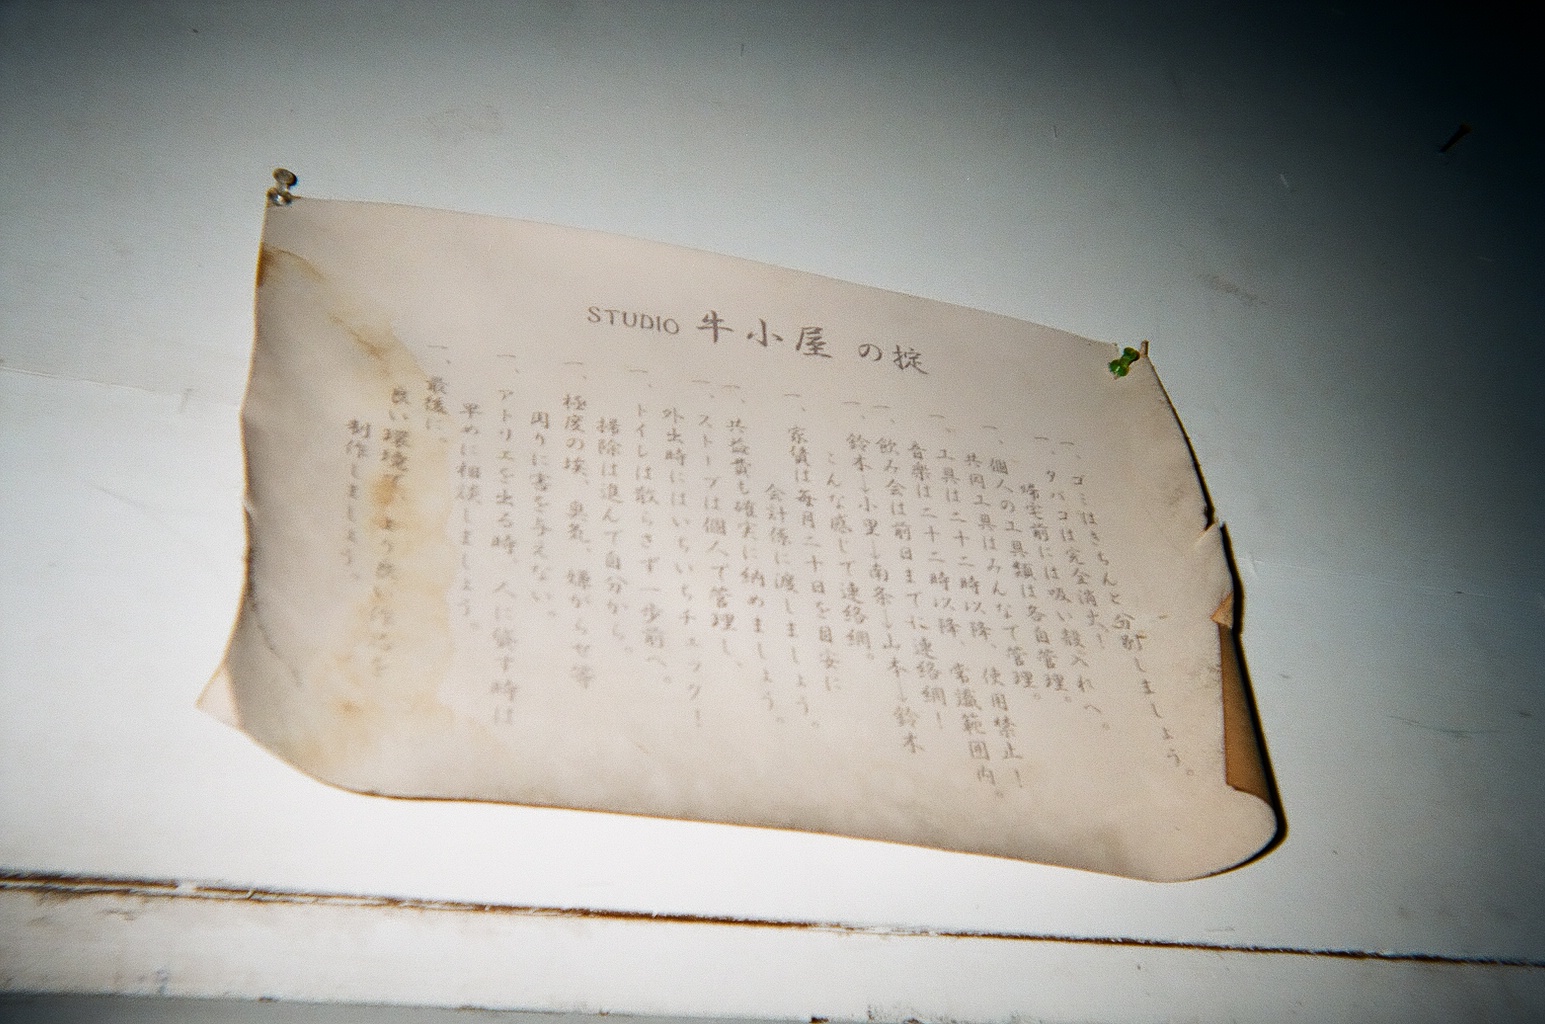 STUDIO 牛小屋 の掟
一、ゴミはきちんと分別しましょう。
一、タバコは完全消火!
帰宅前には吸い殻入れへ。
一、個人の工具類は各自管理。
共同工具はみんなで管理。
一、工具は二十二時以降、使用禁止!
音楽は二十二時以降、常識範囲内。
一、飲み会は前日までに連絡網!
一、鈴木→小里→南条→山本→鈴木
こんな感じで連絡網。
一、家賃は毎月二十日を目安に
会計係に渡しましょう。
一、共益費も確実に納めましょう。
一、ストーブは個人で管理し、
外出時にはいちいちチェック!
一、トイレは散らさず一歩前へ。
掃除は進んで自分から。
一、極度の埃、臭気、嫌がらせ等
周りに害を与えない。
一、アトリエを出る時、人に貸す時は
早めに相談しましょう。
一、最後に。
良い環境で、より良い作品を
制作しましょう。